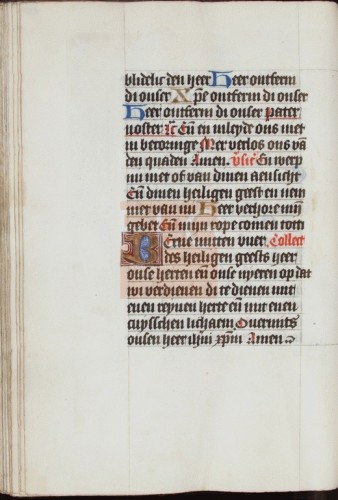 blidelic den heer Heer ontferm
di onser Xpe ontferm di onser
Heer ontferm di onser Pater
noster Eñ en inleyde ons niet
in becoringe Mer verlos ons vā
den quaden Amen. En werp
mi niet of van dinen aensicht
Eñ dinen heiligen geest en nem
niet van mi Heer verhore mijn
gebet Eñ mijn rope comen tot di
Erne mitten vuer Collect
des heiligen geests heer
onse herten eñ onse nyeren op dat
wi verdienen di te dienen mit
enen reynen herte eñ mit enen
cuysschen lichaem Overmits
onsen heer ihm xpm Amen